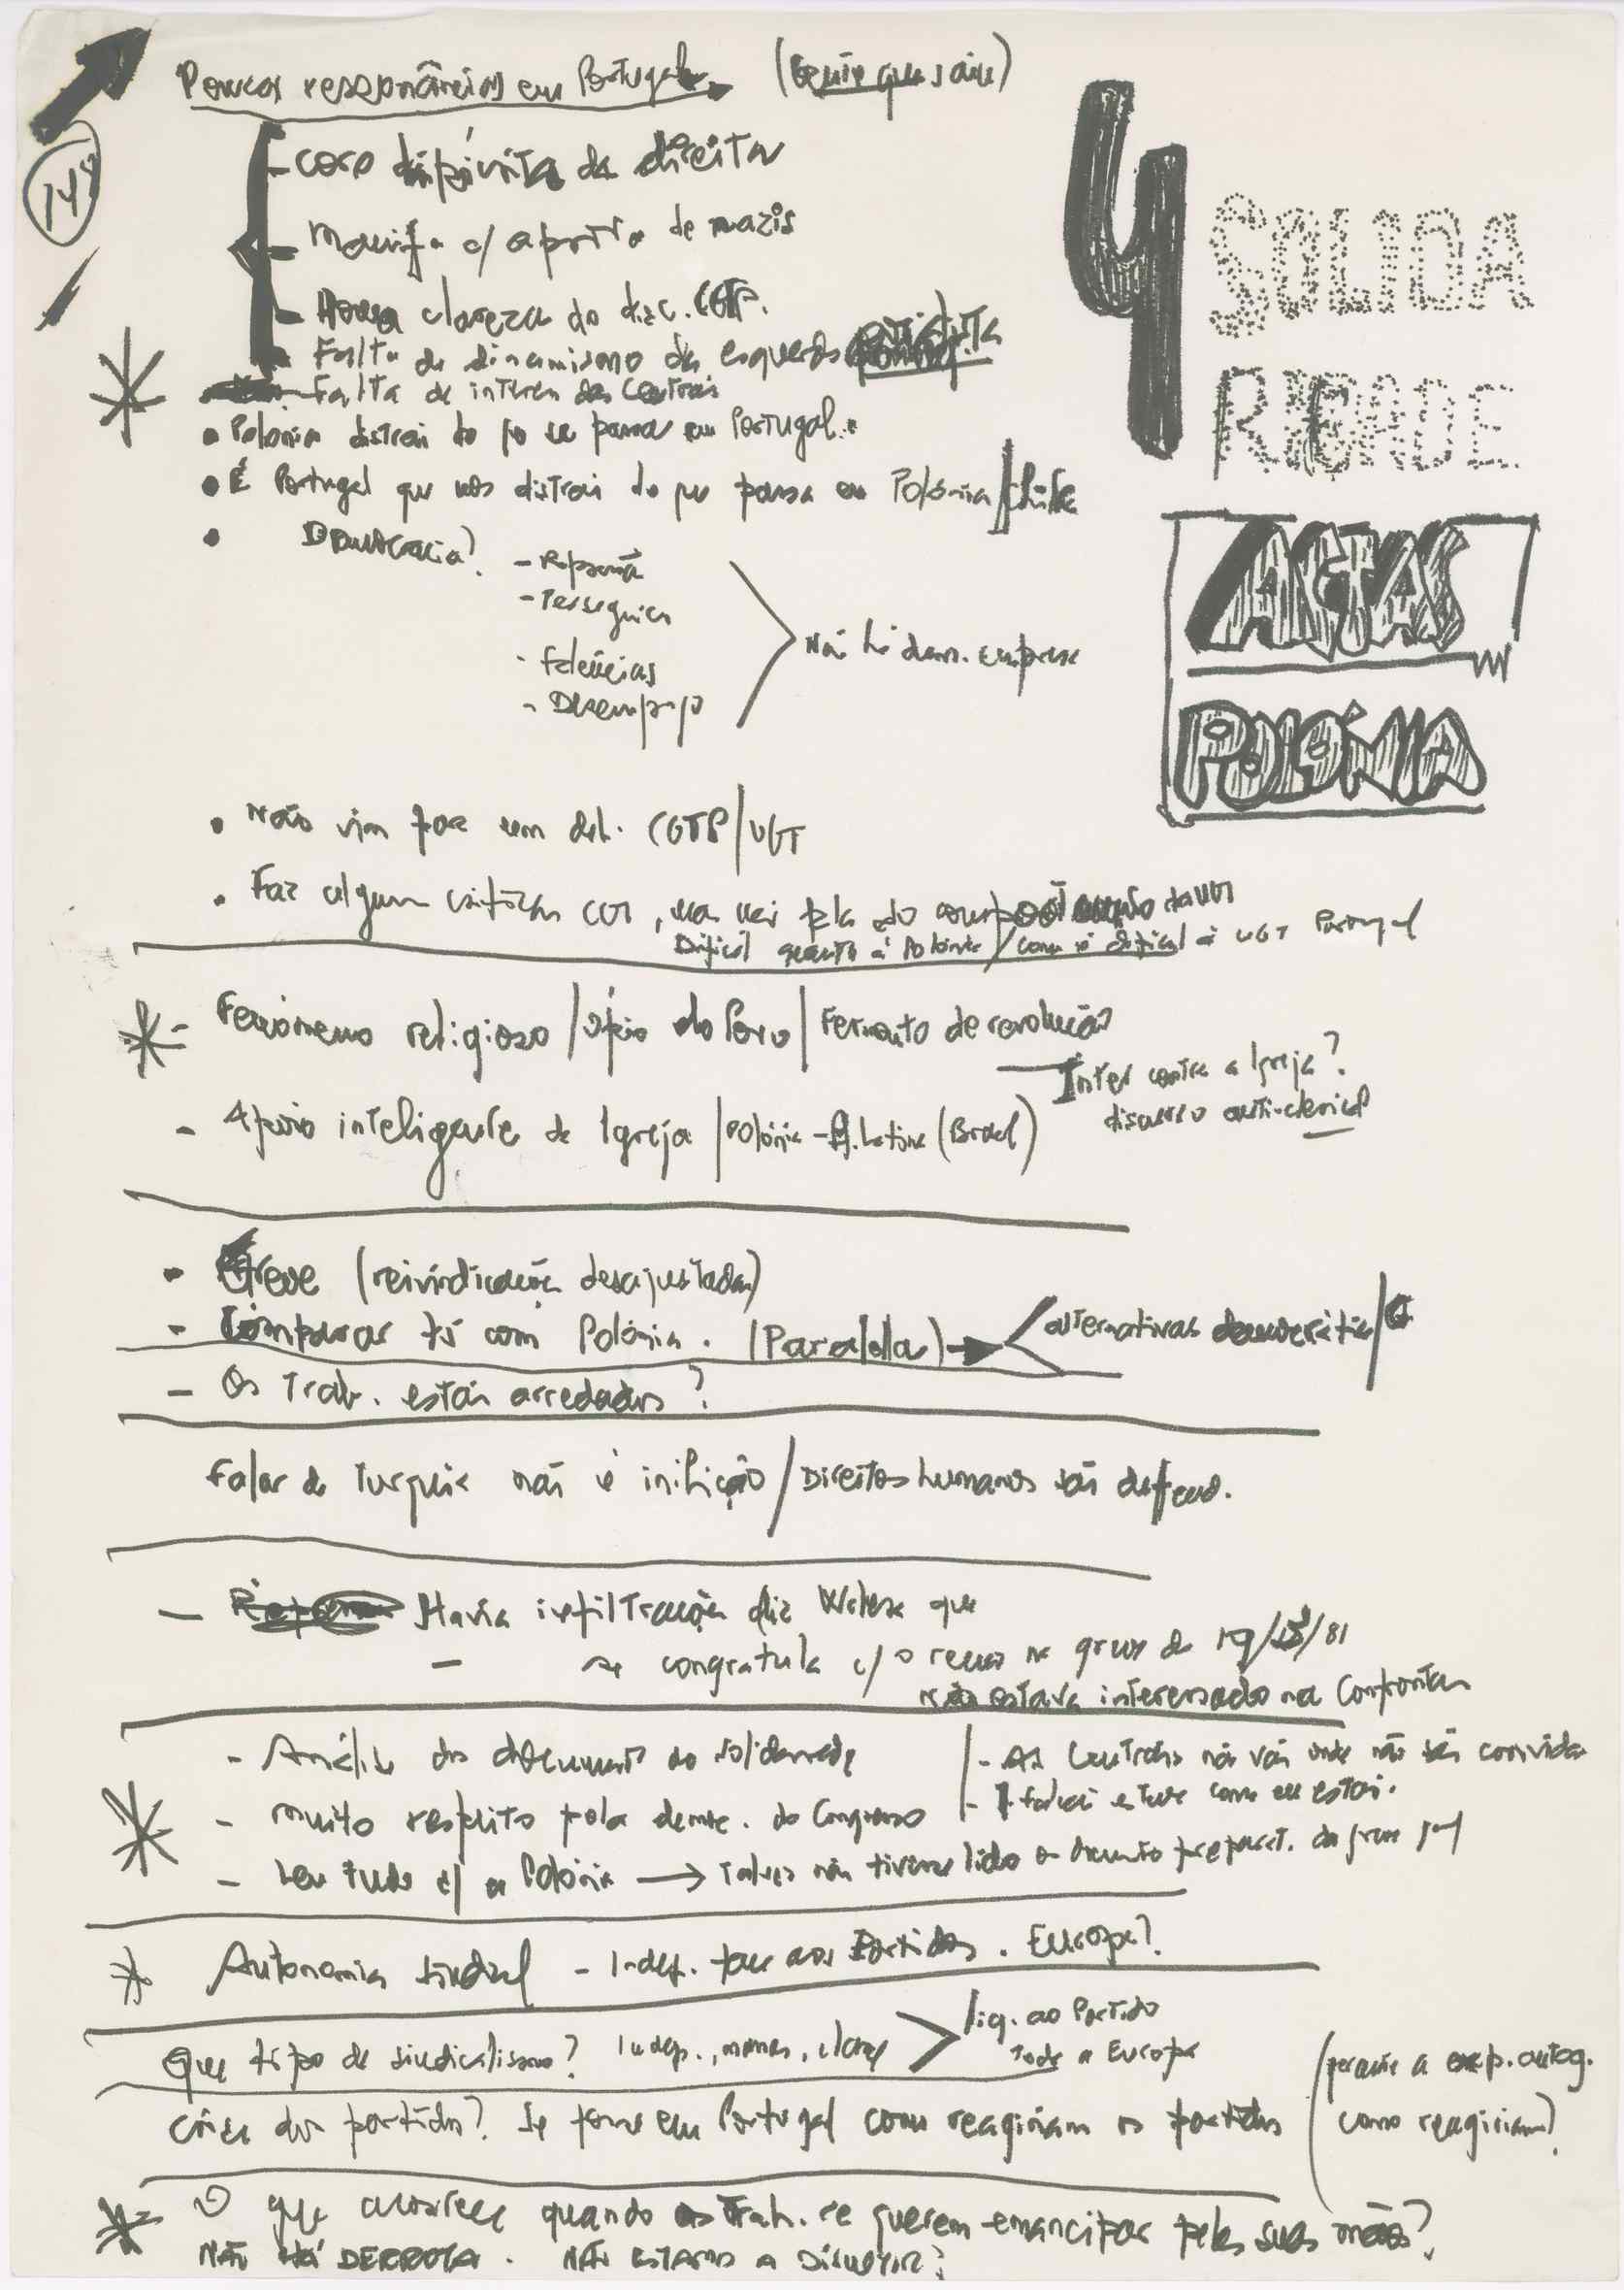 Poucas ressonâncias em Portugal
14º
- coro da direita
- Manif. c/ apoio de nazis
- clareza do disc. CGTP.
Falta de dinamismo da esquerda
- Falta de interes das Centrais
• Polonia distrai do q se passa em Portugal.
• É Portugal que nos distrai do que passa na Polónia/Chile
• Democracia?
- Repressão
- Perseguições
- Falências
- Desemprego
Não há dem. empresa
4
SOLIDA
RIEDADE
ACTAS
POLÓNIA
• Não vim por um deb. CGTP/UGT
• Faz algumas críticas CGT, mas não fala do da UGT
Difícil quanto à Polónia / como é difícil à UGT Portugal
* - Fenómeno religioso / ópio do Povo / Fermento de revolução
- Inter contra a Igreja?
discurso anti-clerical
- Apoio inteligente da Igreja / Polónia - A. Latina (Brasil)
- Greve (reivindicações desajustadas)
- Comparar tb com Polónia. (Paralela) alternativas democráticas/
- Os Trab. estão arredados?
Falar da Turquia não é inibição / Direitos humanos são defend.
- Havia infiltração diz Walesa que
- se congratula c/ o recuo na greve de 19/ /81
não estava interessado na Confrontação
- Análise dos documentos do Solidariedade
- As Centrais não vão onde não são convidadas
* - Muito respeito pela democ. do Congresso
- estive como ele estai.
- Leu tudo s/ a Polónia → Talvez não tivesse lido o documento preparat. da greve
* Autonomia sindical - Indep. face aos Partidos. Europa?
Que tipo de sindicalismo? Indep., massas, classe
lig. ao Partido
Toda a Europa
Crise dos partidos? Se fosse em Portugal como reagiriam os partidos
perante a exp. autog.
como reagiriam?
* - O que acontece quando os Trab. se querem emancipar pelas suas mãos?
NÃO HÁ DERROTA. NÃO ESTAMOS A DISCUTIR?